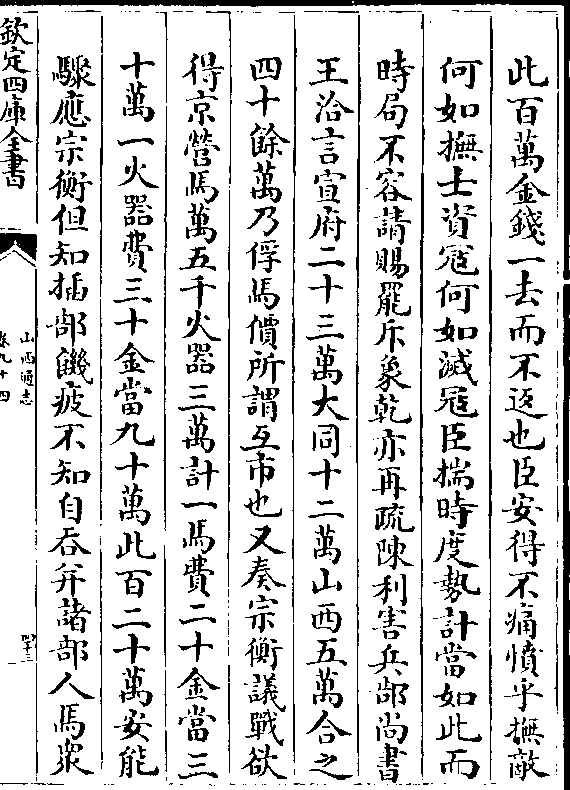 此百萬金錢一去而不返也臣安得不痛憤乎撫敵
何如撫士資冦何如滅冦臣揣時度勢計當如此而
時局不容請賜罷斥象乾亦再疏陳利害兵部尚書
王洽言宣府二十三萬大同十二萬山西五萬合之
四十餘萬乃俘馬價所謂互市也又奏宗衡議戰欲
得京營馬萬五千火器三萬計一馬費二十金當三
十萬一火器費三十金當九十萬此百二十萬安能
驟應宗衡但知插部饑疲不知自吞并諸部人馬衆
欽定四庫全書
山西通志
卷九十四
四十三